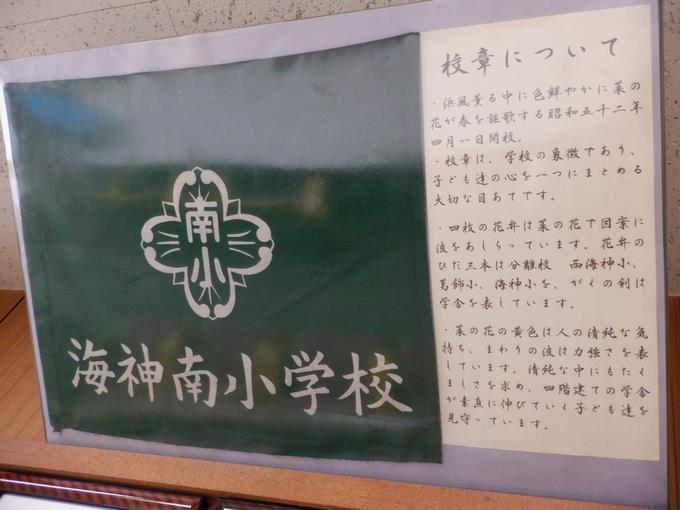 南
小
海神南小学校
校章について
・浜風薫る中に色鮮やかに菜の
花が春を謳歌する昭和五十二年
四月一日開校。
・校章は、学校の象徴であり、
子ども達の心を一つにまとめる
大切な目あてです。
・四枚の花弁は菜の花で図案に
波をあしらっています。花弁の
ひだ三本は分離校 西海神小、
葛飾小、海神小を、がくの剣は
学舎を表しています。
・菜の花の黄色は人の清純な気
持ち、まわりの波は力強さを表
しています。清純な中にもたく
ましさを求め、四階建ての学舎
が素直に伸びていく子ども達を
見守っています。